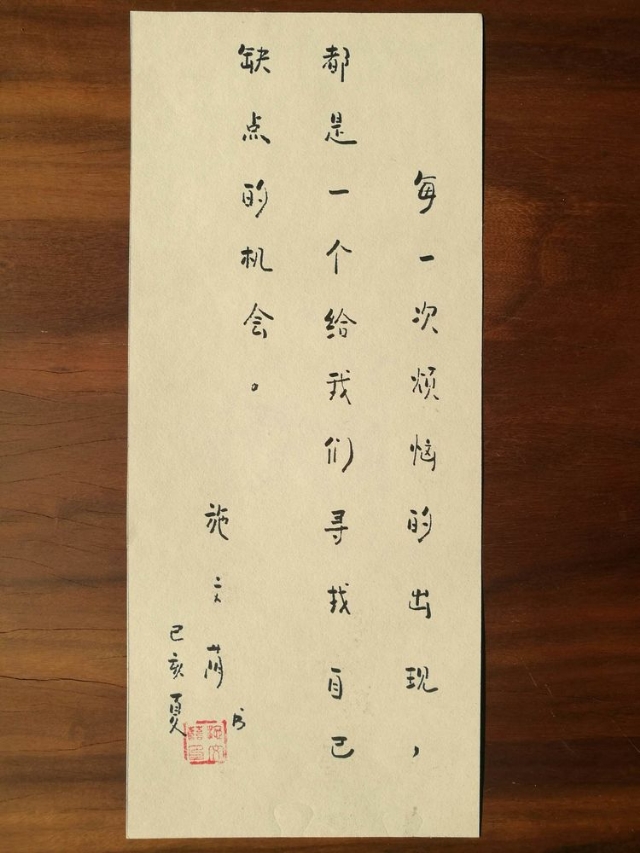 每一次烦恼的出现，
都是一个给我们寻找自己
缺点的机会。
施文 书
己亥夏